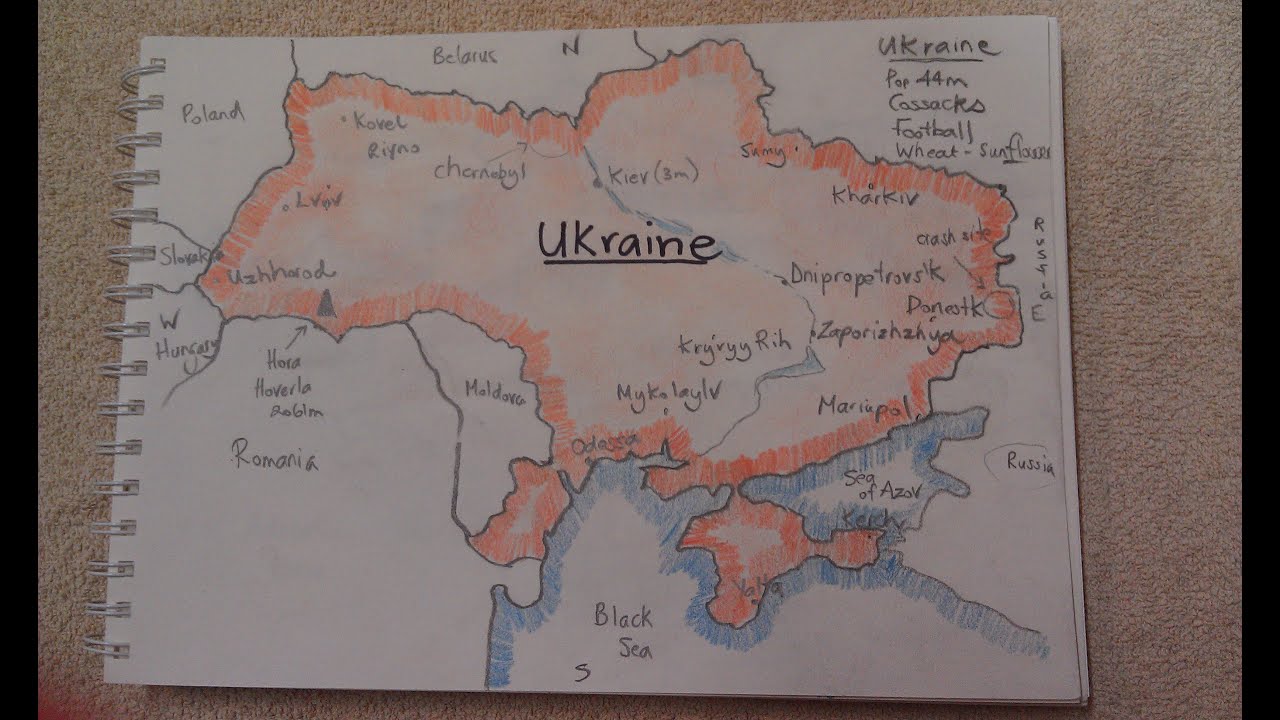 Ukraine
Pop 44m
Cossacks
Football
Wheat - Sunflower
Belarus
N
Poland
Kovel
Rivno
Chernobyl
Kiev (3m)
Sumy
Kharkiv
Lviv
Ukraine
crash site
Russia
Slovakia
Uzhhorod
Dnipropetrovs'k
Donestk
E
W
Hungary
Zaporizhzhya
Kryvyy Rih
Hora
Hoverla
2061m
Moldova
Mykolaylv
Mariupol
Odassa
Romania
Russia
Sea
of Azov
Kerch
Yalta
Black
Sea
S